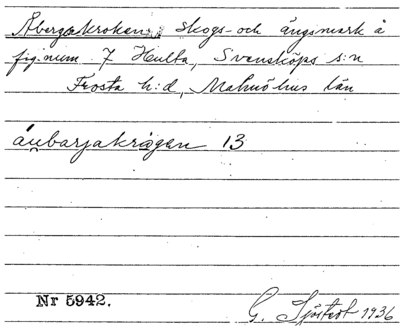 Åbergakroken, skogs- och ängsmark å
fig.num. 7 Hulta, Svensköps s:n
Frosta h:d, Malmöhus län
áu̯barjakrågen 13
Nr 5942.
G. Sjöstedt 1936